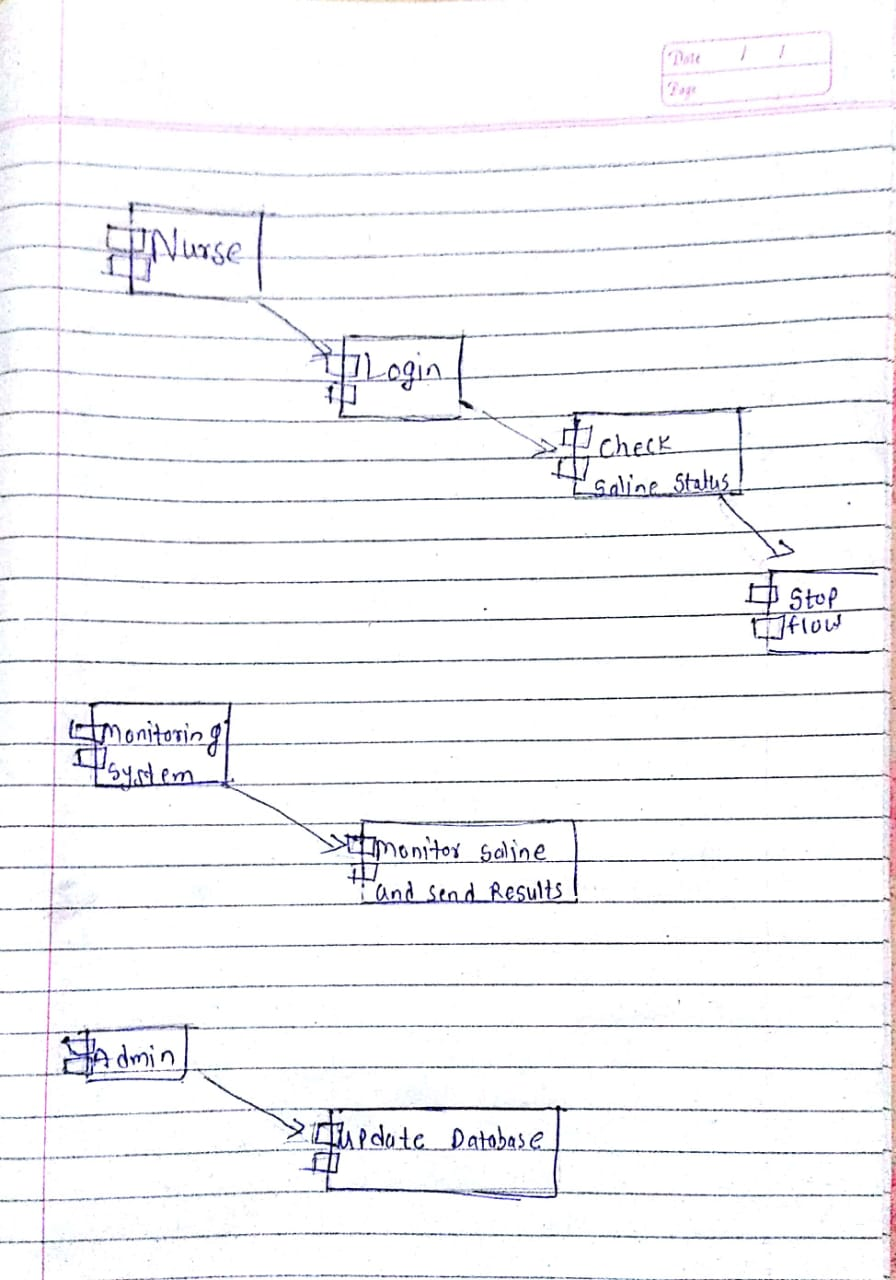 Date / /
Page
Nurse
Login
Check
Saline Status
Stop
flow
Monitoring
System
Monitor Saline
and send Results
Admin
Update Database